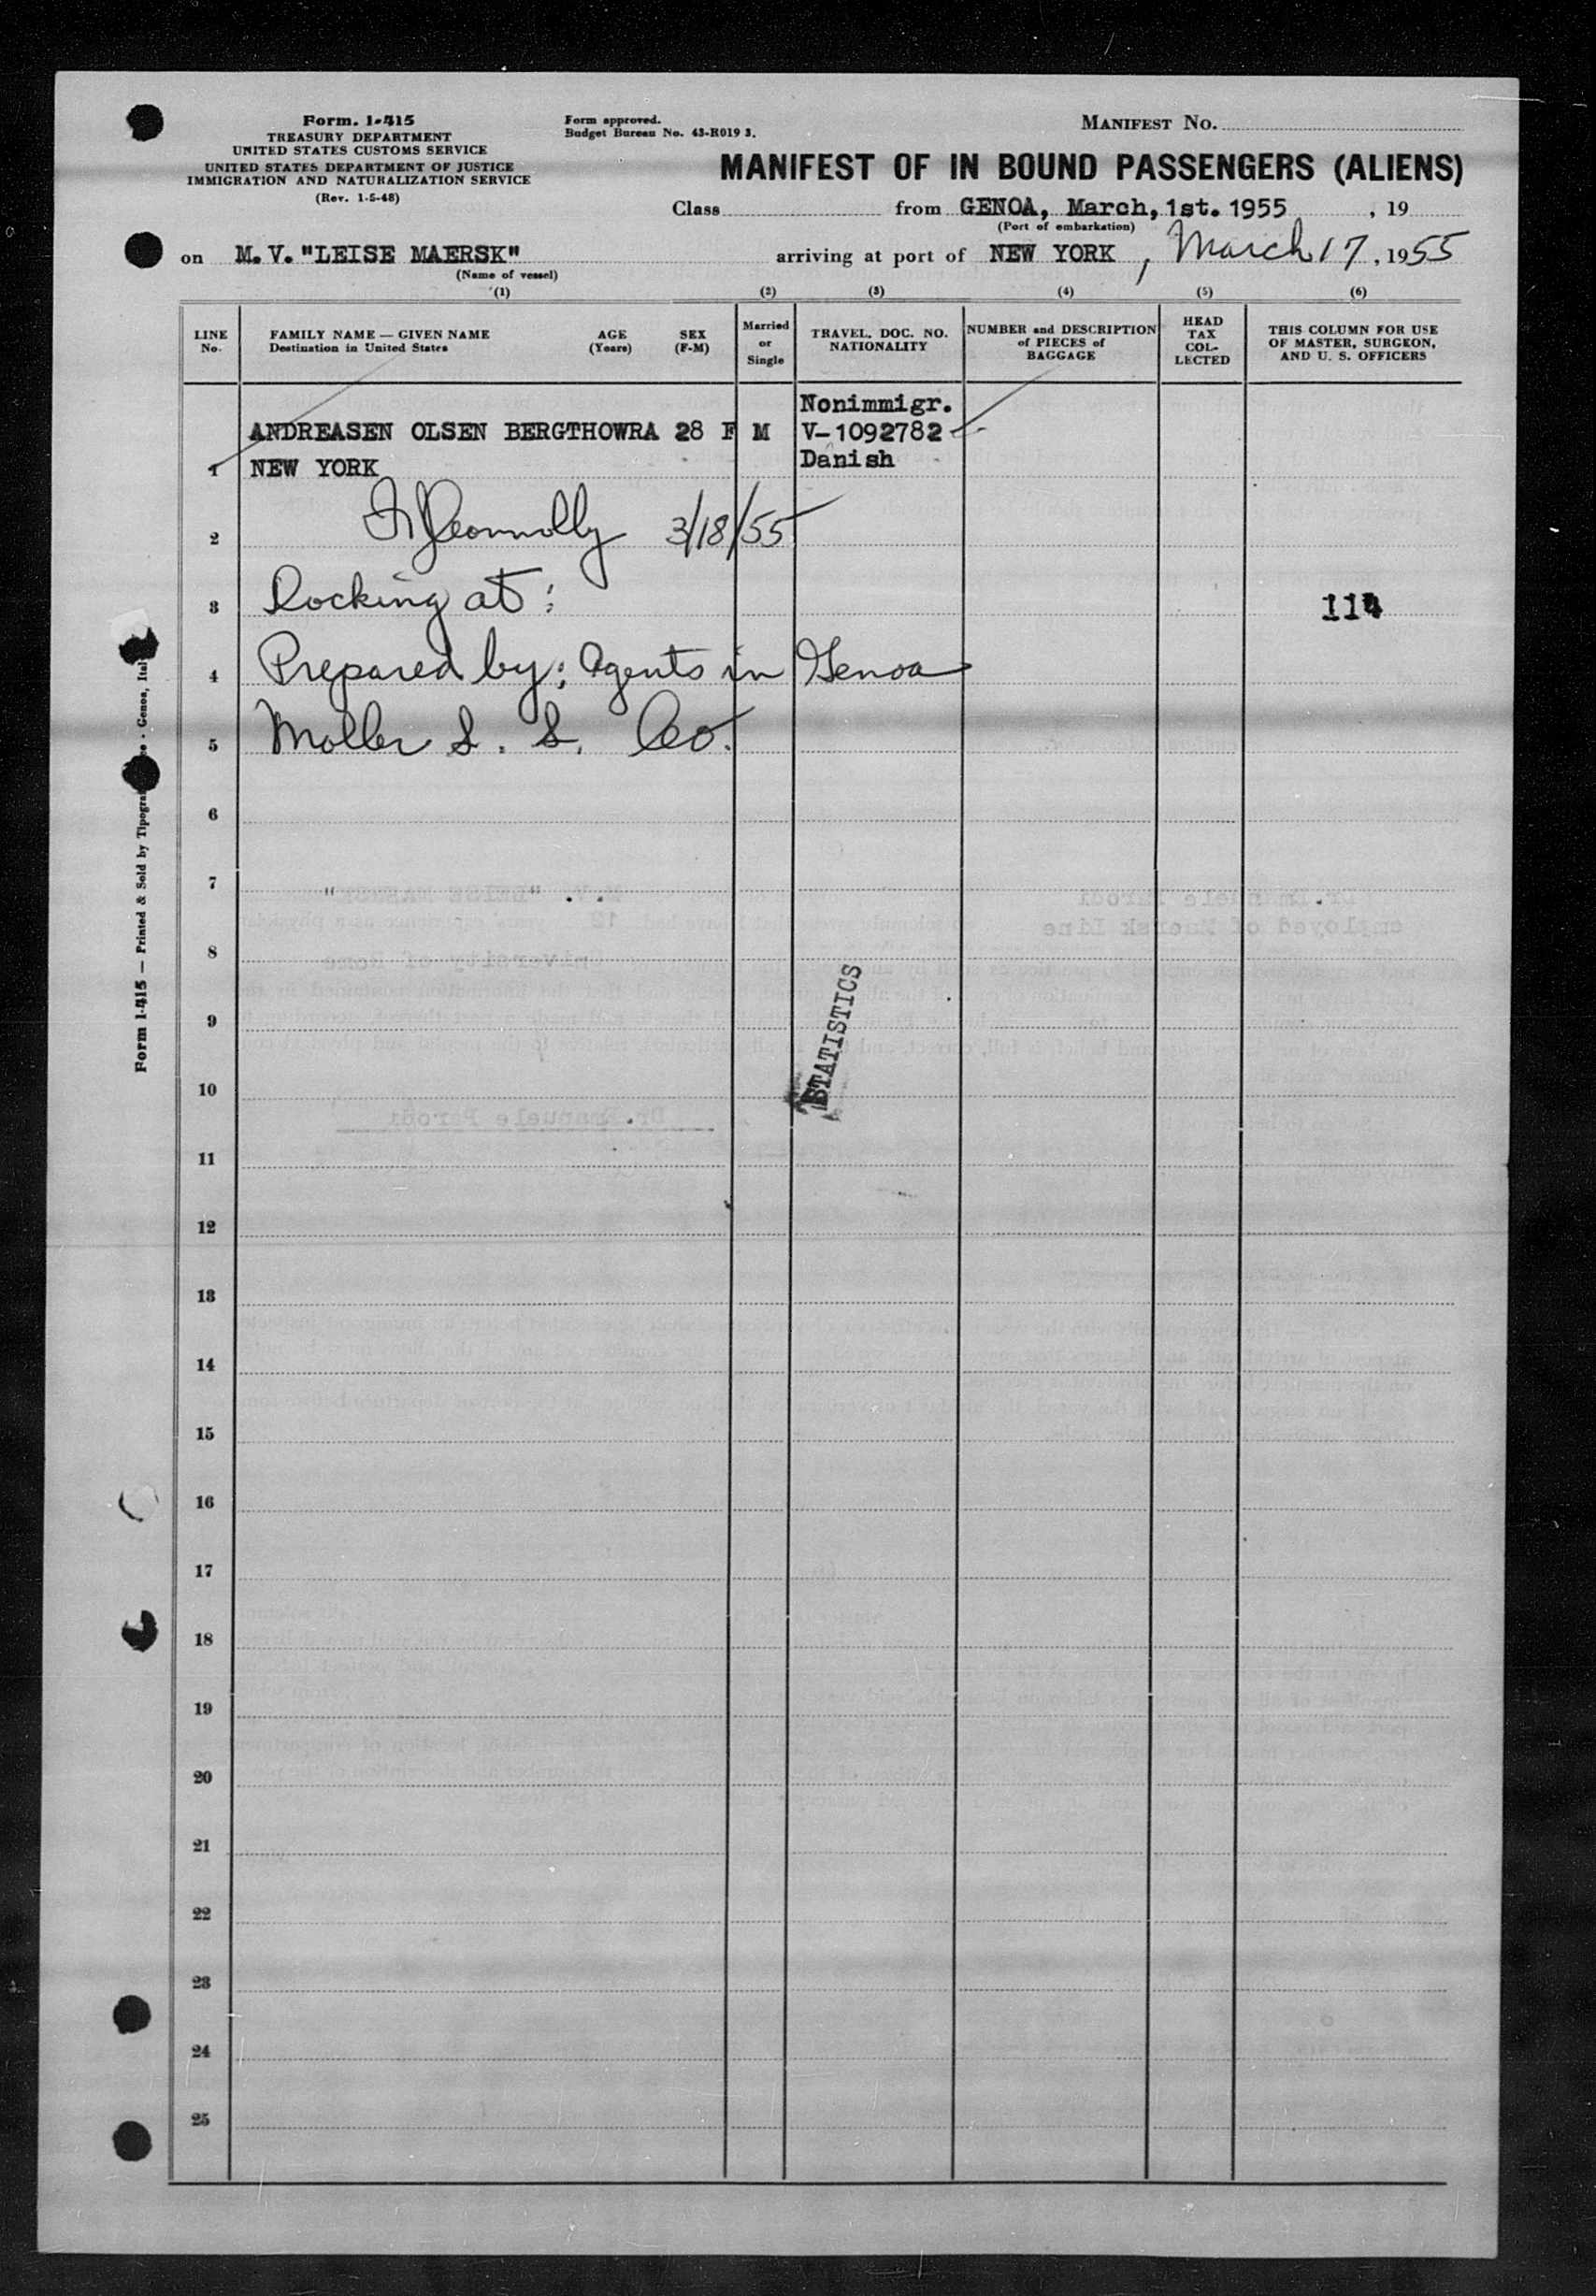 Form. I-415
TREASURY DEPARTMENT
UNITED STATES CUSTOMS SERVICE
UNITED STATES DEPARTMENT OF JUSTICE
IMMIGRATION AND NATURALIZATION SERVICE
(Rev. 1-5-48)
Form approved.
Budget Bureau No. 43-R019 3.
MANIFEST NO.
MANIFEST OF IN BOUND PASSENGERS (ALIENS)
Class from GENOA, March, 1st. 1955 , 19
(Port of embarkation)
on M.V. "LEISE MAERSK" arriving at port of NEW YORK, March 17, 1955
(Name of vessel)
(1) (2) (3) (4) (5) (6)
LINE No.
FAMILY NAME — GIVEN NAME
Destination in United States
AGE (Years)
SEX (F-M)
Married or Single
TRAVEL. DOC. NO. NATIONALITY
NUMBER and DESCRIPTION of PIECES of BAGGAGE
HEAD TAX COL- LECTED
THIS COLUMN FOR USE OF MASTER, SURGEON, AND U. S. OFFICERS
Nonimmigr.
ANDREASEN OLSEN BERGTHOWRA 28 F M V-1092782
1 NEW YORK Danish
2 Connolly 3/18/55
3 Docking at: 114
4 Prepared by: Agents in Genoa
5 Moller S. S. Co.
6
7
8
9
STATISTICS
10
11
12
13
14
15
16
17
18
19
20
21
22
23
24
25
Form I-415 — Printed & Sold by - Genoa,